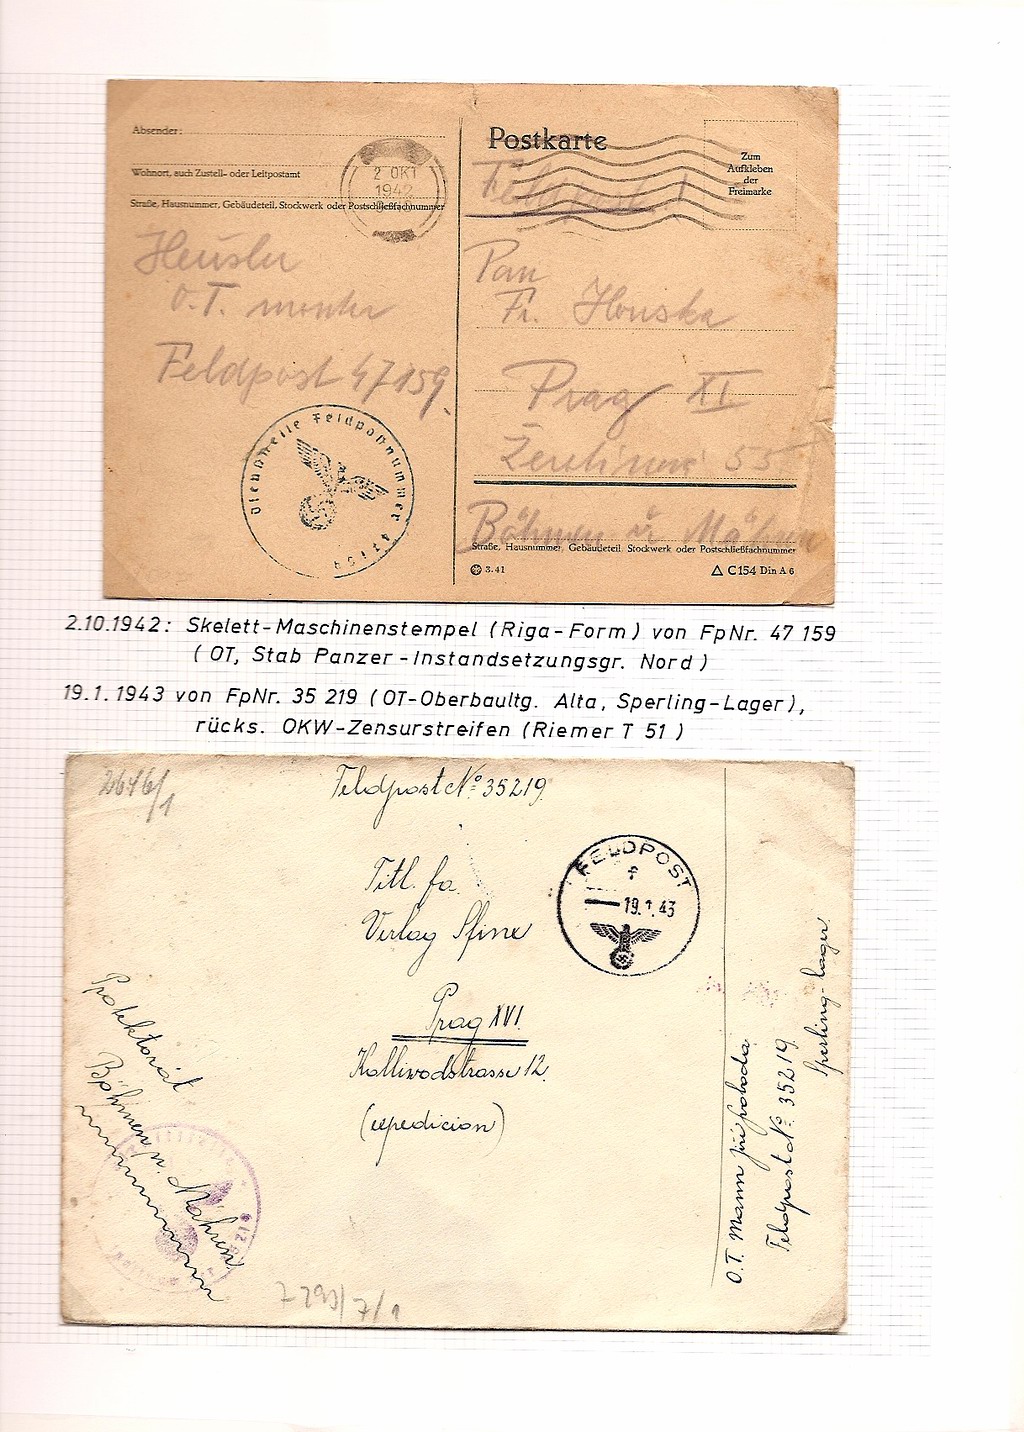 Absender:
Wohnort, auch Zustell- oder Leitpostamt
Straße, Hausnummer, Gebäudeteil, Stockwerk oder Postschließfachnummer
2 OKT
1942
Heusler
O.T. 
Feldpost 47159.
Dienststelle Feldpostnummer 47159
Postkarte
Feldpost!
Zum
Aufkleben
der
Freimarke
Pan
Fr. Houska
Prag XI.
55
Böhmen u. Mähren
Straße, Hausnummer, Gebäudeteil, Stockwerk oder Postschließfachnummer
3. 41
C 154 Din A 6
2.10.1942: Skelett-Maschinenstempel (Riga-Form) von FpNr. 47 159
(OT, Stab Panzer-Instandsetzungsgr. Nord)
19.1.1943 von FpNr. 35 219 (OT-Oberbaultg. Alta, Sperling-Lager),
rücks. OKW-Zensurstreifen (Riemer T 51)
2646/1
Feldpost No 35219.
FELDPOST
f
19.1.43
Titl. fa.
Verlag Sfinx
Prag XVI.
Kolliwodstrasse 12.
(expedicion)
Protektorát
Böhmen u. Mähren
O.T. Mann Jiří Svoboda
Feldpost No. 35219.
Sperling-Lager